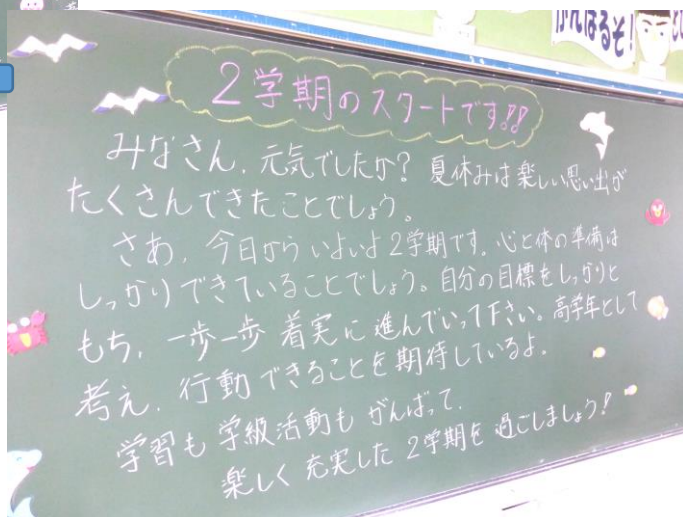 がんばるぞ!
2学期のスタートです!!
みなさん、元気でしたか? 夏休みは楽しい思い出が
たくさんできたことでしょう。
さあ、今日からいよいよ2学期です。心と体の準備は
しっかりできていることでしょう。自分の目標をしっかりと
もち、一歩一歩 着実に進んでいって下さい。高学年として
考え、行動できることを期待しているよ。
学習も学級活動もがんばって、
楽しく充実した2学期を過ごしましょう!